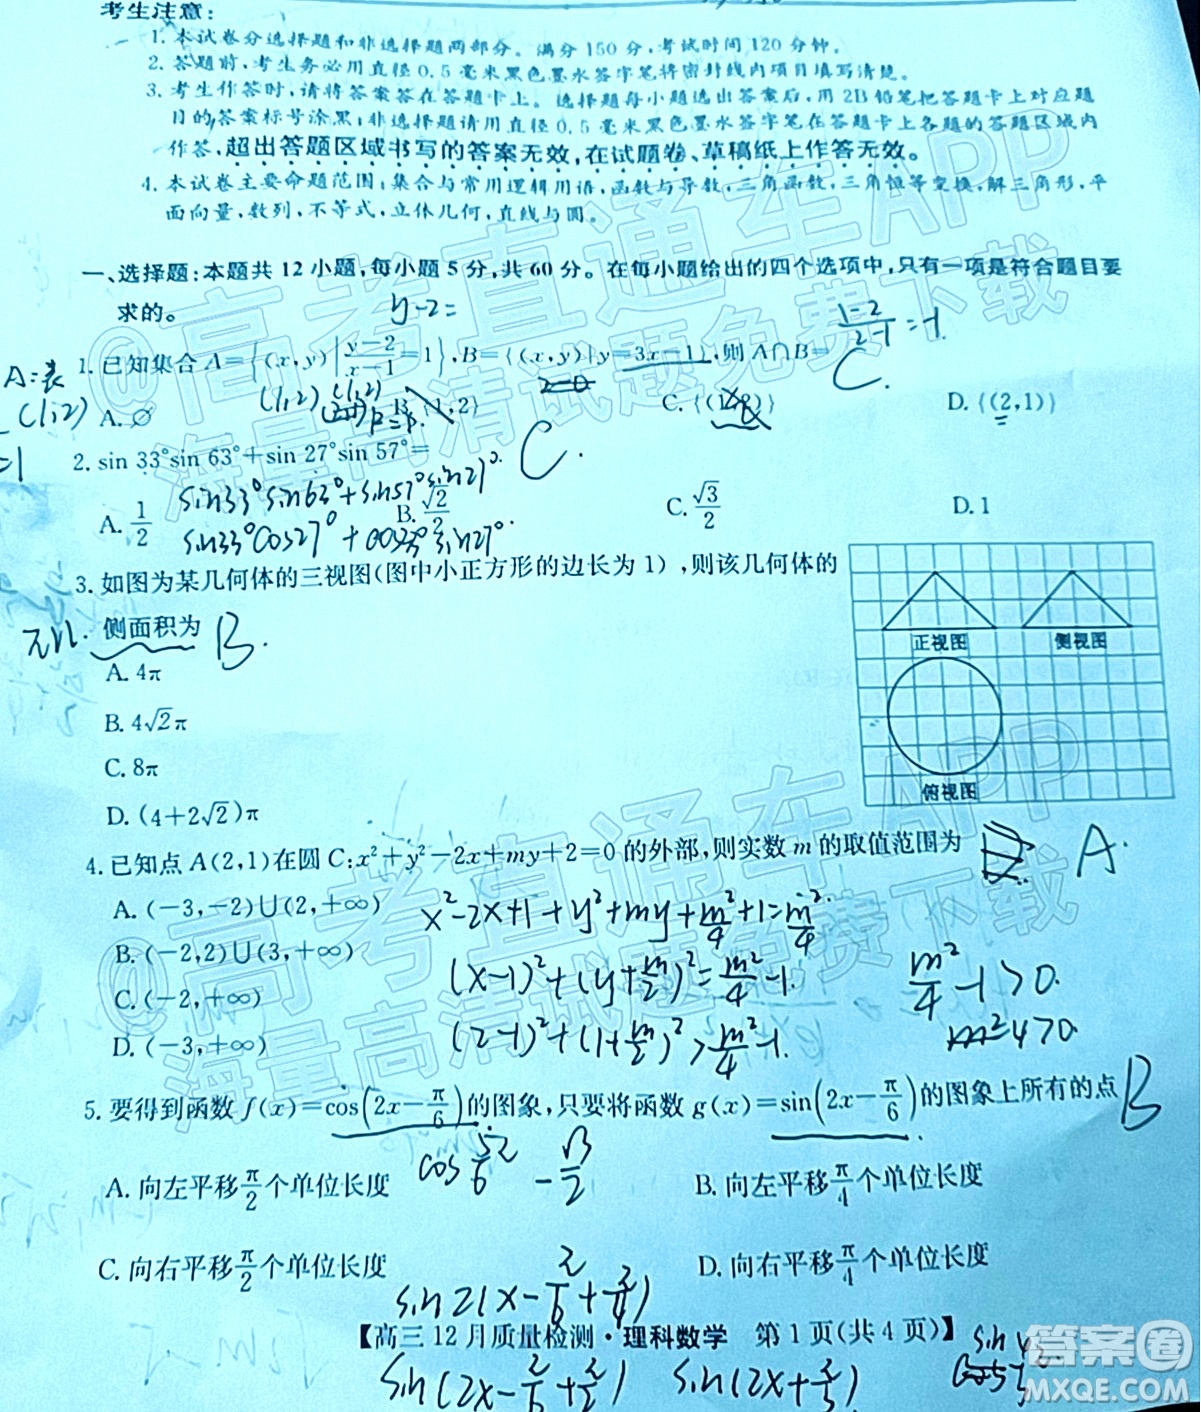 考生注意:
1. 本试卷分选择题和非选择题两部分。满分150分,考试时间120分钟。
2. 答题前,考生务必用直径0.5毫米黑色墨水签字笔将密封线内项目填写清楚。
3. 考生作答时,请将答案答在答题卡上。选择题每小题选出答案后,用2B铅笔把答题卡上对应题
目的答案标号涂黑;非选择题请用直径0.5毫米黑色墨水签字笔在答题卡上各题的答题区域内
作答,超出答题区域书写的答案无效,在试题卷、草稿纸上作答无效。
4. 本试卷主要命题范围:集合与常用逻辑用语,函数与导数,三角函数,三角恒等变换,解三角形,平
面向量,数列,不等式,立体几何,直线与圆。
一、选择题:本题共12小题,每小题5分,共60分。在每小题给出的四个选项中,只有一项是符合题目要
求的。
y-2=
(1-2)/(2-1)=-1
1. 已知集合A={(x,y)|(y-2)/(x-1)=1},B={(x,y)|y=3x-1},则A∩B=
C.
A:表
(1,2)
(1,2) (1,2)
A. ∅ B. {1,2} C. {(1,2)} D. {(2,1)}
2. sin 33°sin 63°+sin 27°sin 57°=
C.
sin33°sin63°+sin57°sin27°.
A. 1/2 B. √2/2 C. √3/2 D. 1
sin33°cos27°+cos33°sin27°.
3. 如图为某几何体的三视图(图中小正方形的边长为1),则该几何体的
侧面积为 B.
πrl.
A. 4π
B. 4√2π
C. 8π
D. (4+2√2)π
正视图 侧视图
俯视图
4. 已知点A(2,1)在圆C:x²+y²-2x+my+2=0的外部,则实数m的取值范围为
A.
A. (-3,-2)∪(2,+∞)
B. (-2,2)∪(3,+∞)
C. (-2,+∞)
D. (-3,+∞)
x²-2x+1+y²+my+m²/4+1=m²/4.
(x-1)²+(y+m/2)²=m²/4-1.
(2-1)²+(1+m/2)²>m²/4-1.
m²/4-1>0.
5. 要得到函数f(x)=cos(2x-π/6)的图象,只要将函数g(x)=sin(2x-π/6)的图象上所有的点
B
A. 向左平移π/2个单位长度 B. 向左平移π/4个单位长度
C. 向右平移π/2个单位长度 D. 向右平移π/4个单位长度
sin2(x-π/6+π/4)
【高三12月质量检测·理科数学 第1页(共4页)】
sin(2x-π/6+π/2) sin(2x+π/3)
@高考直通车APP
海量高清试题免费下载
@高考直通车APP
海量高清试题免费下载
答案圈
MXQE.COM